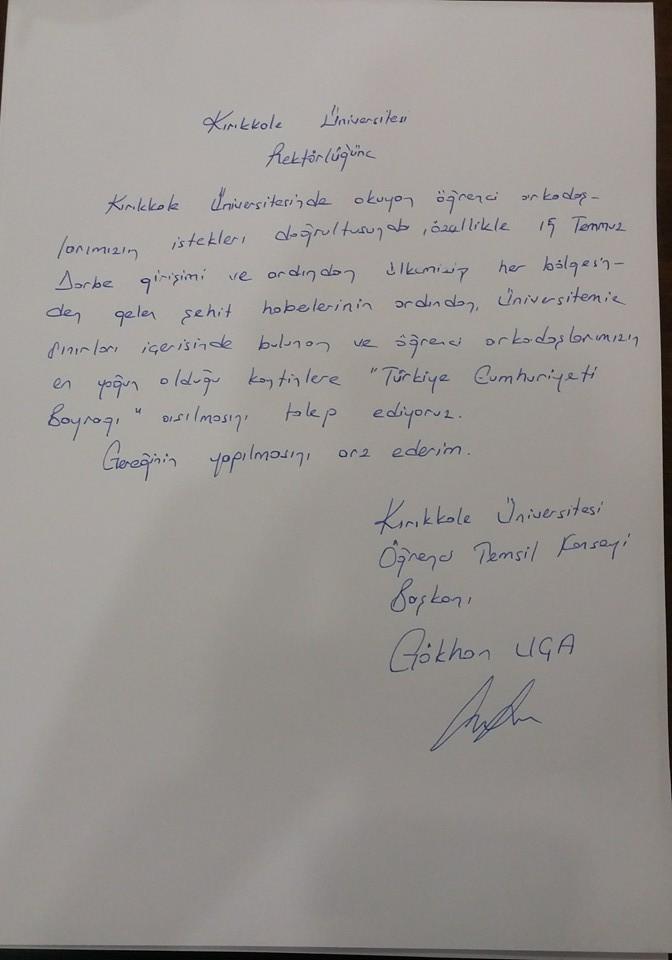 Kırıkkale Üniversitesi
Rektörlüğüne
Kırıkkale Üniversitesinde okuyan öğrenci arkadaş-
larımızın istekleri doğrultusunda, özellikle 15 Temmuz
Darbe girişimi ve ardından ülkemizin her bölgesin-
den gelen şehit habelerinin ardından, Üniversitemiz
sınırları içerisinde bulunan ve öğrenci arkadaşlarımızın
en yoğun olduğu kantinlere "Türkiye Cumhuriyeti
Bayrağı" asılmasını talep ediyoruz.
Gereğinin yapılmasını arz ederim.
Kırıkkale Üniversitesi
Öğrenci Temsil Konseyi
Başkanı
Gökhan UÇA